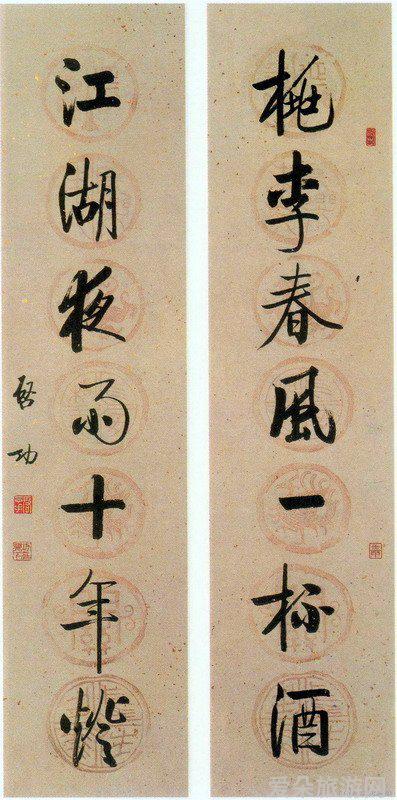 桃李春風一杯酒
江湖夜雨十年燈
啓功
爱朵旅游网